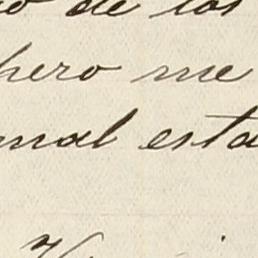 de los
pero me
mal esta